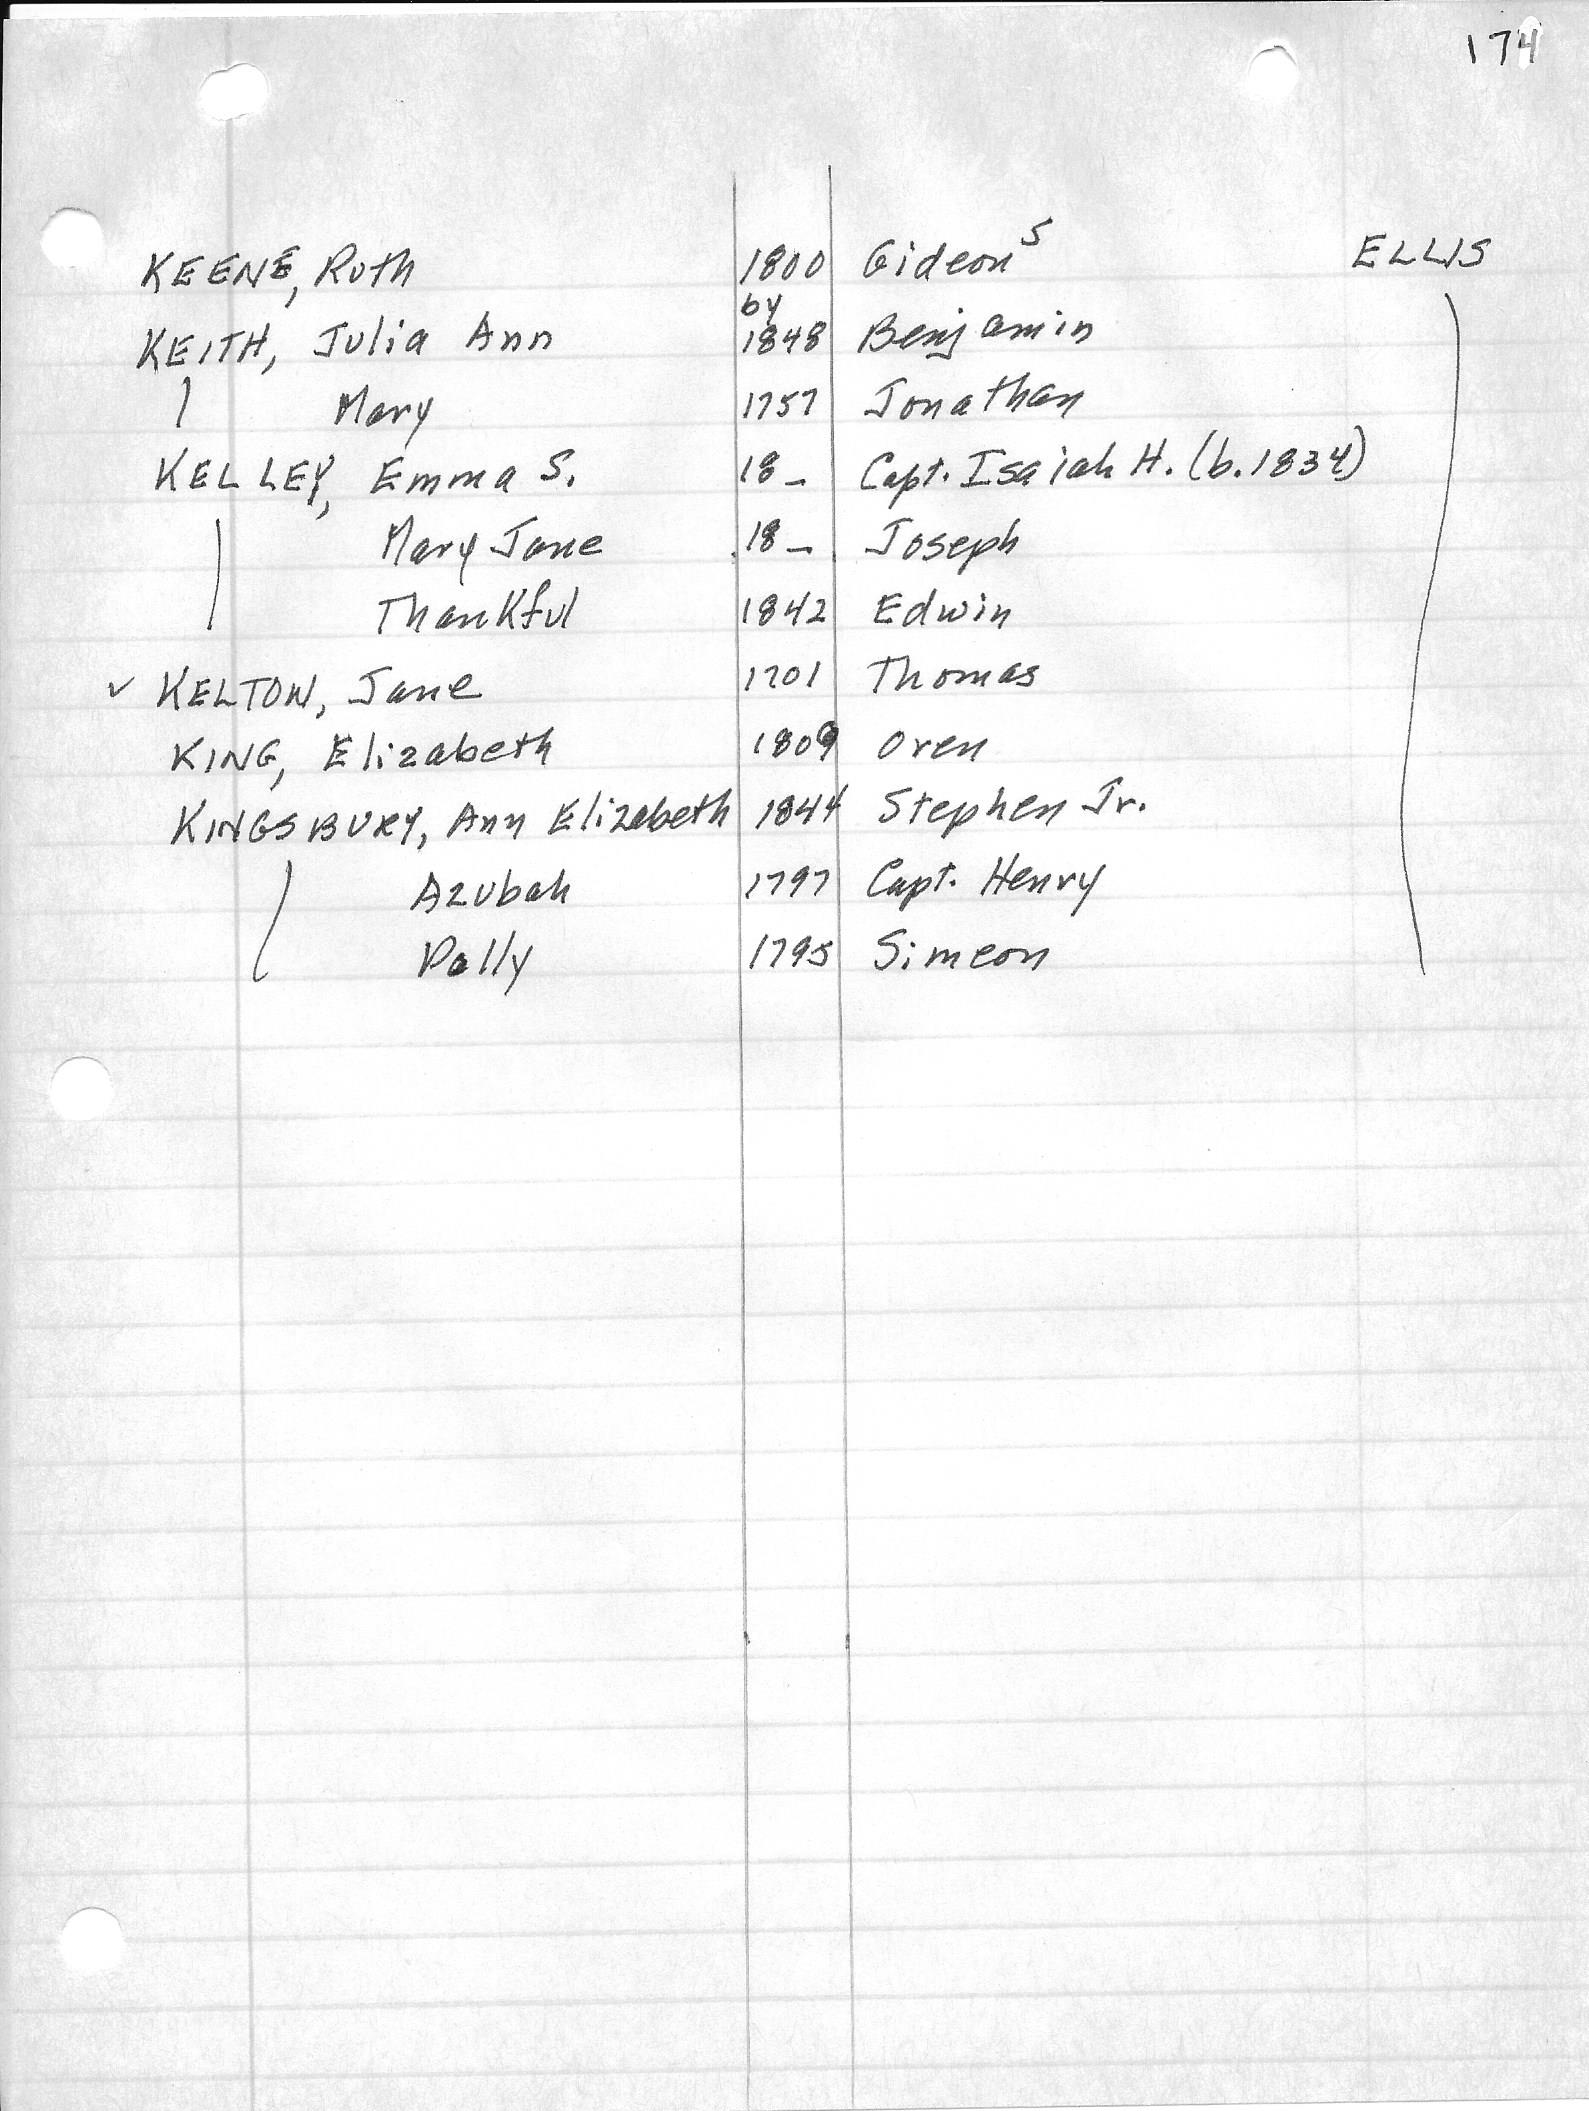 174
KEENE, Ruth 1800 Gideon 5 ELLIS
KEITH, Julia Ann by 1848 Benjamin
Mary 1757 Jonathan
KELLEY, Emma S. 18_ Capt. Isaiah H. (b. 1834)
Mary Jane 18_ Joseph
Thankful 1842 Edwin
✓ KELTON, Jane 1701 Thomas
KING, Elizabeth 1809 Oren
KINGSBURY, Ann Elizabeth 1844 Stephen Jr.
Azubah 1797 Capt. Henry
Polly 1795 Simeon